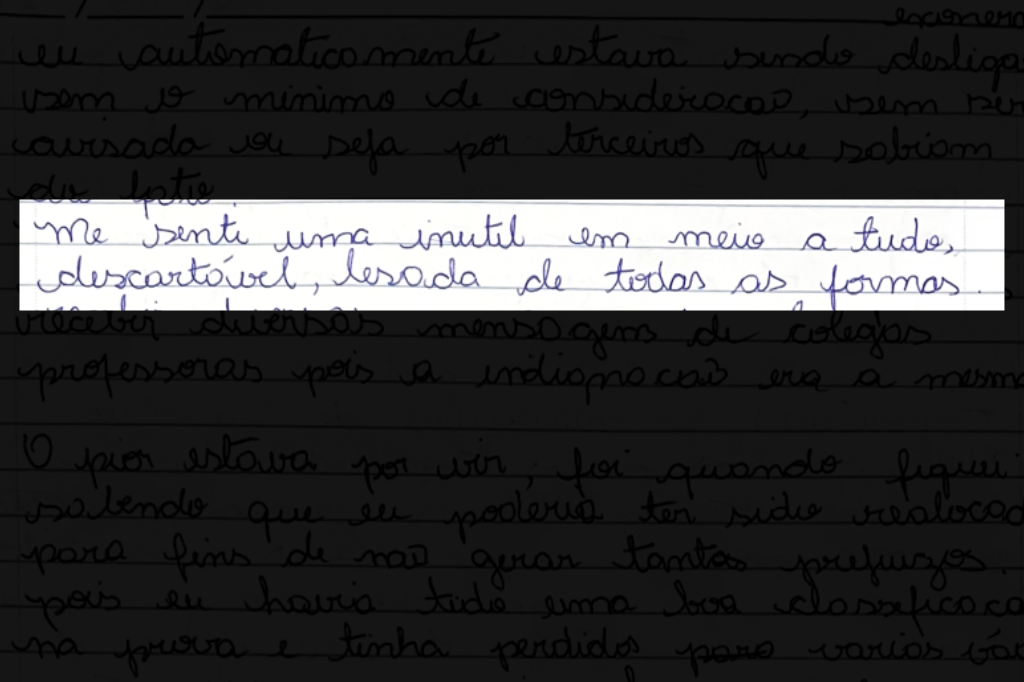 exonera
eu automaticamente estava sendo desliga
sem o minimo de consideracao, sem ser
avisada ou seja por terceiros que sabiam
do fato.
Me senti uma inutil em meio a tudo,
descartável, lesada de todas as formas.
recebi diversas mensagens de colegas
professoras pois a indignacaõ era a mesma
O pior estava por vir, foi quando fiquei
sabendo que eu poderia ter sido realocad
para fins de naõ gerar tantos prejuizos.
pois eu havia tido uma boa classificaca
na prova e tinha perdidos para varios